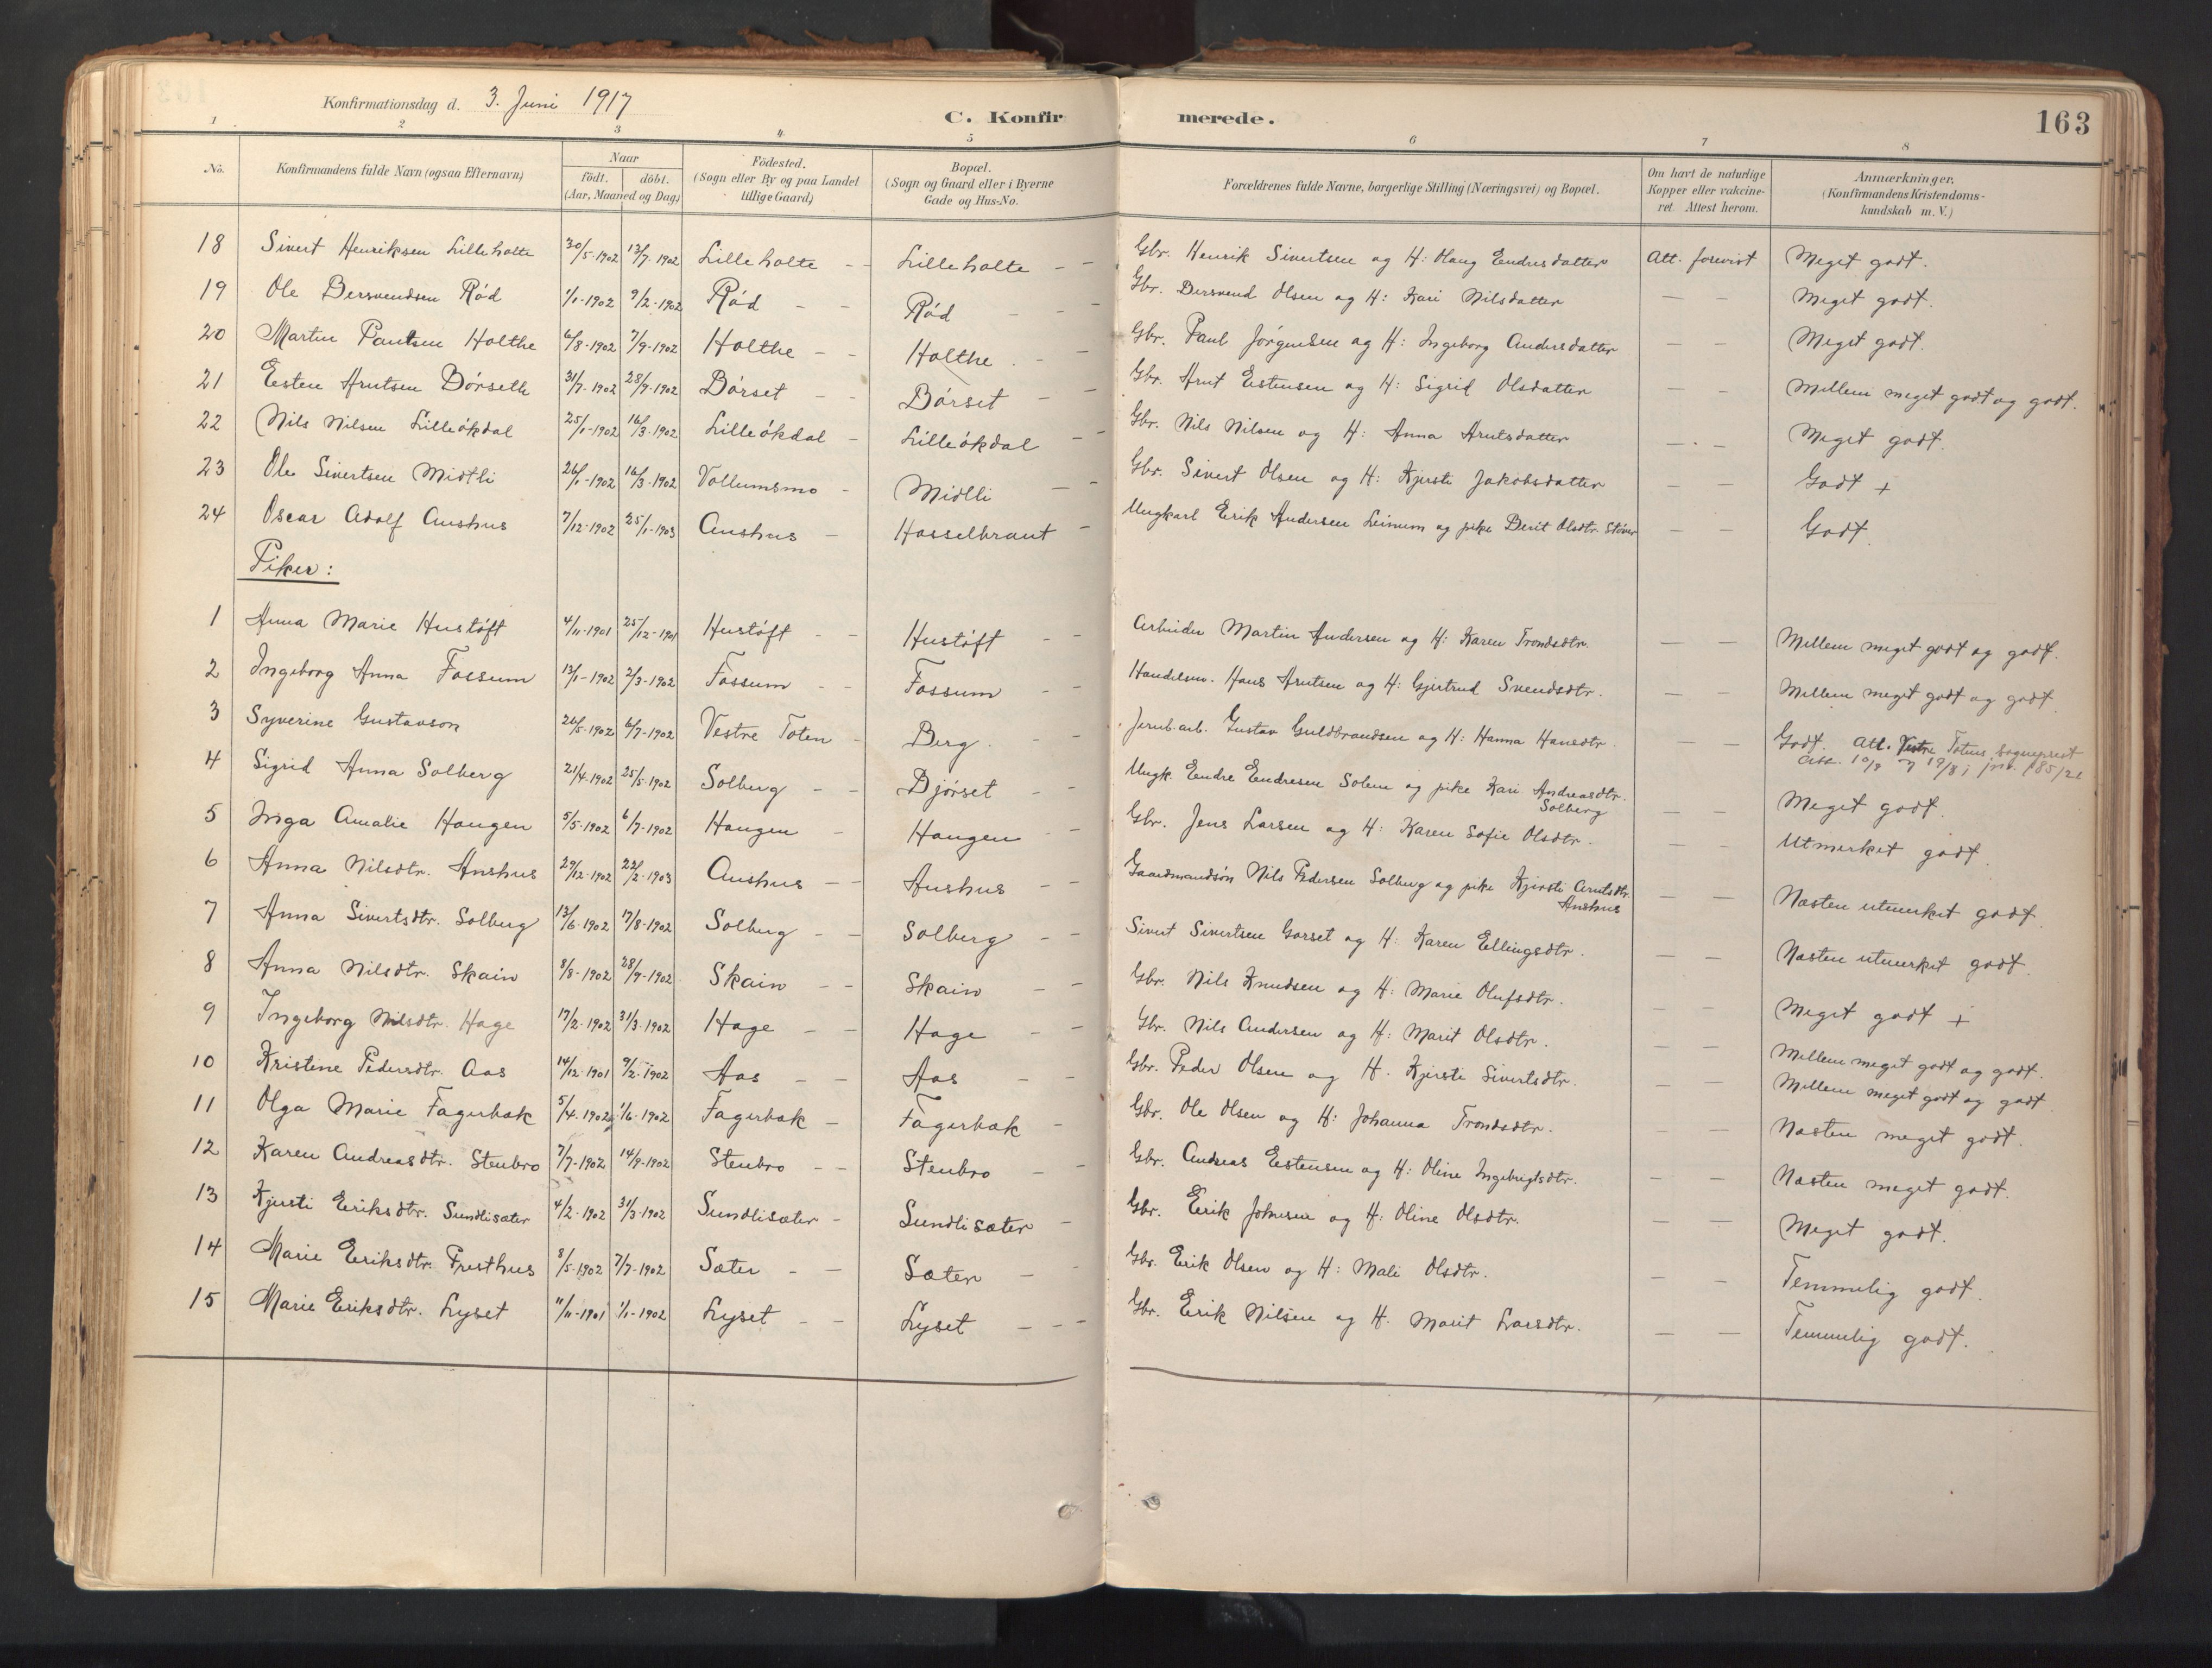 Konfirmationsdag d. 3. Juni 1917
C. Konfirmerede.
163
1 2 3 4 5 6 7 8
No.
Konfirmandens fulde Navn (ogsaa Efternavn)
Naar
födt. döbt.
(Aar, Maaned og Dag)
Födested.
(Sogn eller By og paa Landet
tillige Gaard)
Bopæl.
(Sogn og Gaard eller i Byerne
Gade og Hus-No.
Forældrenes fulde Navne, borgerlige Stilling (Næringsvei) og Bopæl.
Om havt de naturlige
Kopper eller vakcine-
ret. Attest herom.
Anmærkninger.
(Konfirmandens Kristendoms-
kundskab m. V.)
18 Sivert Henriksen Lilleholte 30/5-1902 13/7-1902 Lilleholte – – Lilleholte – – Gbr. Henrik Sivertsen og H: Olaug Endresdatter Att. forevist Meget godt.
19 Ole Bersvendsen Rød 1/1-1902 9/2-1902 Rød – – Rød – – Gbr. Bersvend Olsen og H: Kari Nilsdatter – – Meget godt.
20 Martin Paulsen Holthe 6/8-1902 7/9-1902 Holthe – – Holthe – – Gbr. Paul Jørgensen og H: Ingeborg Andersdatter – – Meget godt.
21 Esten Arntsen Børseth 31/7-1902 28/9-1902 Børset – – Børset – – Gbr. Arnt Estensen og H: Sigrid Olsdatter – – Mellem meget godt og godt.
22 Nils Nilsen Lilleøkdal 25/1-1902 16/3-1902 Lilleøkdal – Lilleøkdal – – Gbr. Nils Nilsen og H: Anna Arntsdatter – – Meget godt.
23 Ole Sivertsen Midtli 26/1-1902 16/3-1902 Vollumsmo – Midtli – – Gbr. Sivert Olsen og H: Kjersti Jakobsdatter – – Godt +
24 Oscar Adolf Aushus 7/12-1902 25/1-1903 Aushus – Hasselbraut – Ungkarl Erik Andersen Leinum og pike Berit Olsdtr. Støver – – Godt.
Piker:
1 Anna Marie Hustøft 4/11-1901 25/12-1901 Hustøft – – Hustøft – – Arbeider Martin Andersen og H: Karen Trondsdtr. – – Mellem meget godt og godt.
2 Ingeborg Anna Fossum 13/1-1902 2/3-1902 Fossum – – Fossum – – Handelsm. Hans Arntsen og H: Gjertrud Svendsdtr. – – Mellem meget godt og godt.
3 Syverine Gustavson 26/5-1902 6/7-1902 Vestre Toten – Berg – – Jernb.arb. Gustav Guldbrandsen og H: Hanna Hansdtr. – – Godt. Att. Vestre Totens sogneprest
4 Sigrid Anna Solberg 21/4-1902 25/5-1902 Solberg – – Djørset – – Ungk. Endre Endresen Solem og pike Kari Andreasdtr.
Solberg – – Meget godt.
5 Inga Amalie Haugen 5/5-1902 6/7-1902 Haugen – Haugen – – Gbr. Jens Larsen og H: Karen Sofie Olsdtr. – – Utmerket godt.
6 Anna Nilsdtr. Aushus 29/12-1902 22/2-1903 Aushus – – Aushus – – Gaardmandsøn Nils Pedersen Solberg og pike Kjersti Arntsdtr.
Aushus – – Næsten utmerket godt.
7 Anna Sivertsdtr. Solberg 13/6-1902 17/8-1902 Solberg – – Solberg – – Sivert Sivertsen Gorset og H: Karen Ellingsdtr. – – Næsten utmerket godt.
8 Anna Nilsdtr. Skain 8/8-1902 28/9-1902 Skain – – Skain – – Gbr. Nils Knudsen og H: Marie Olufsdtr. – – Meget godt +
9 Ingeborg Nilsdtr. Hage 17/2-1902 31/3-1902 Hage – – Hage – – Gbr. Nils Andersen og H: Marit Olsdtr. – – Mellem meget godt og godt.
10 Kristine Pedersdtr. Aas 14/12-1901 9/2-1902 Aas – – Aas – – Gbr. Peder Olsen og H. Kjersti Sivertsdtr. – – Mellem meget godt og godt.
11 Olga Marie Fagerbæk 5/4-1902 1/6-1902 Fagerbæk – Fagerbæk – Gbr. Ole Olsen og H: Johanna Trondsdtr. – – Næsten meget godt.
12 Karen Andreasdtr. Stenbro 7/7-1902 14/9-1902 Stenbro – – Stenbro – – Gbr. Andreas Estensen og H: Oline Ingebrigtsdtr. – – Næsten meget godt.
13 Kjersti Eriksdtr. Sundlisæter 4/2-1902 31/3-1902 Sundlisæter – Sundlisæter – Gbr. Erik Johnsen og H: Oline Olsdtr. – – Meget godt.
14 Marie Eriksdtr. Presthus 8/5-1902 7/7-1902 Sæter – – Sæter – – Gbr. Erik Olsen og H: Mali Olsdtr. – – Temmelig godt.
15 Marie Eriksdtr. Lyset 11/11-1901 1/1-1902 Lyset – – Lyset – – – Gbr. Erik Nilsen og H. Marit Larsdtr. – – Temmelig godt.